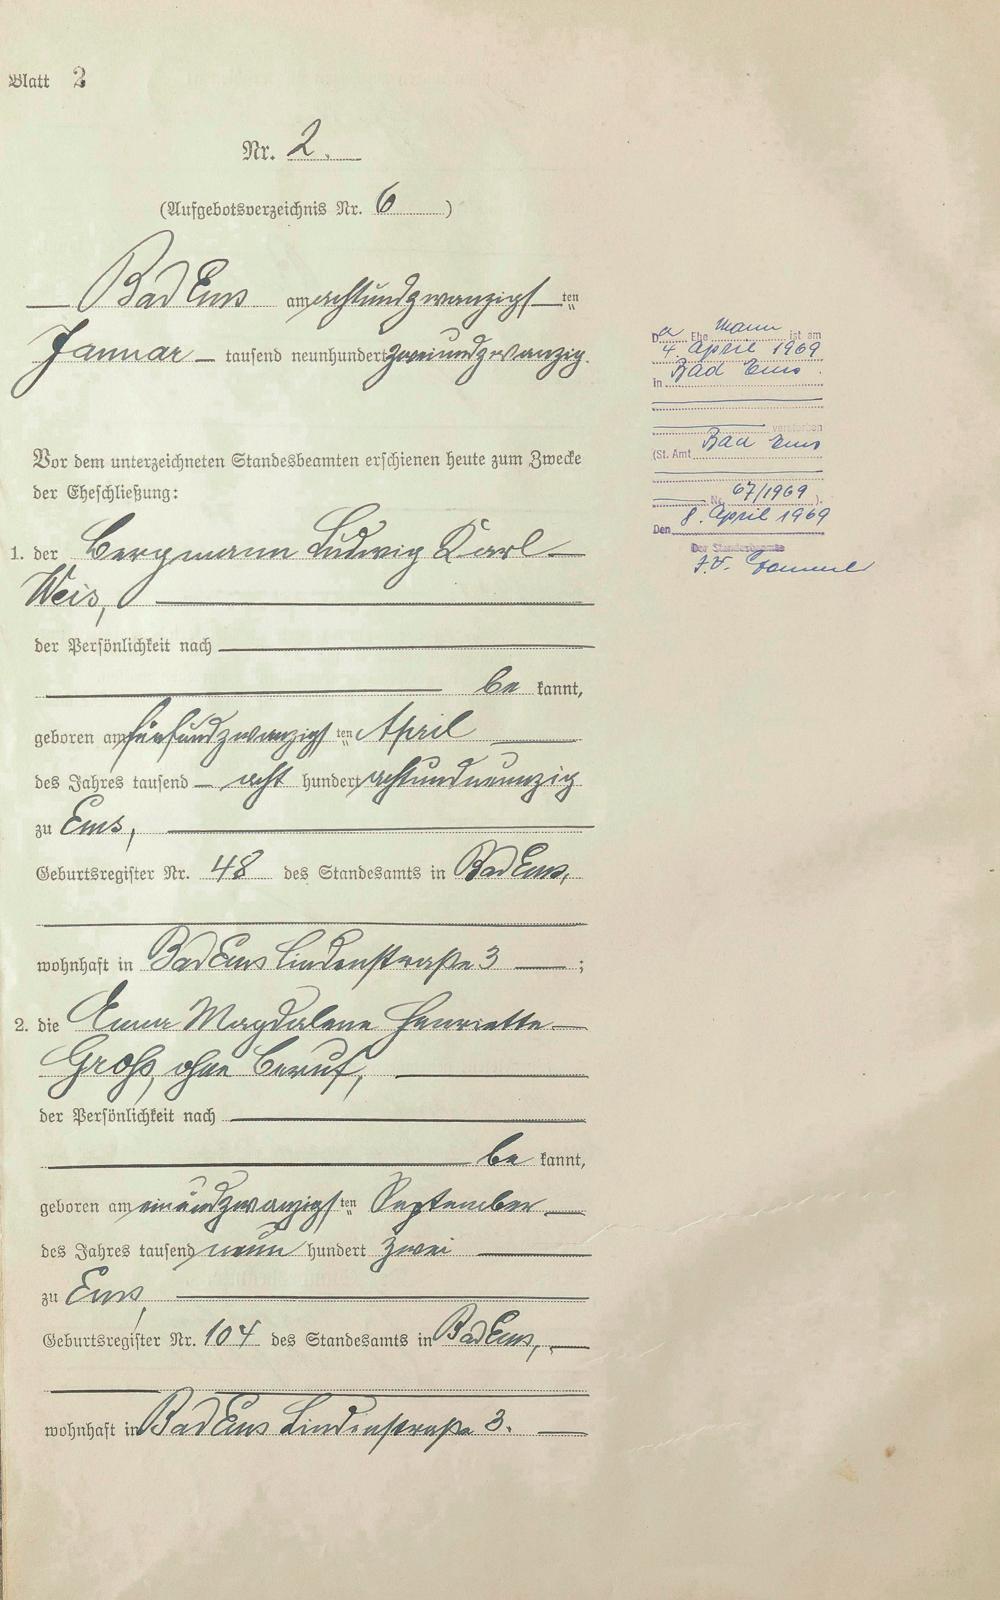 Blatt 2
Nr. 2.
(Aufgebotsverzeichnis Nr. 6 )
Bad Ems am achtundzwanzigsten
Januar tausend neunhundert zweiundzwanzig.
Vor dem unterzeichneten Standesbeamten erschienen heute zum Zwecke
der Eheschließung:
1. der Bergmann Ludwig Karl
Weis,
der Persönlichkeit nach
be kannt,
geboren am fünfundzwanzigsten April
des Jahres tausend acht hundert achtundneunzig
zu Ems,
Geburtsregister Nr. 48 des Standesamts in Bad Ems,
wohnhaft in Bad Ems Lindenstraße 3 ;
2. die Emma Magdalene Henriette
Groß, ohne Beruf,
der Persönlichkeit nach
be kannt,
geboren am einundzwanzigsten September
des Jahres tausend neun hundert zwei
zu Ems,
Geburtsregister Nr. 104 des Standesamts in Bad Ems,
wohnhaft in Bad Ems Lindenstraße 3.
Der Ehe Mann ist am
4. April 1969
in Bad Ems
verstorben
(St. Amt Bad Ems
Nr. 67/1969 ).
Den 8. April 1969
Der Standesbeamte
I.V.